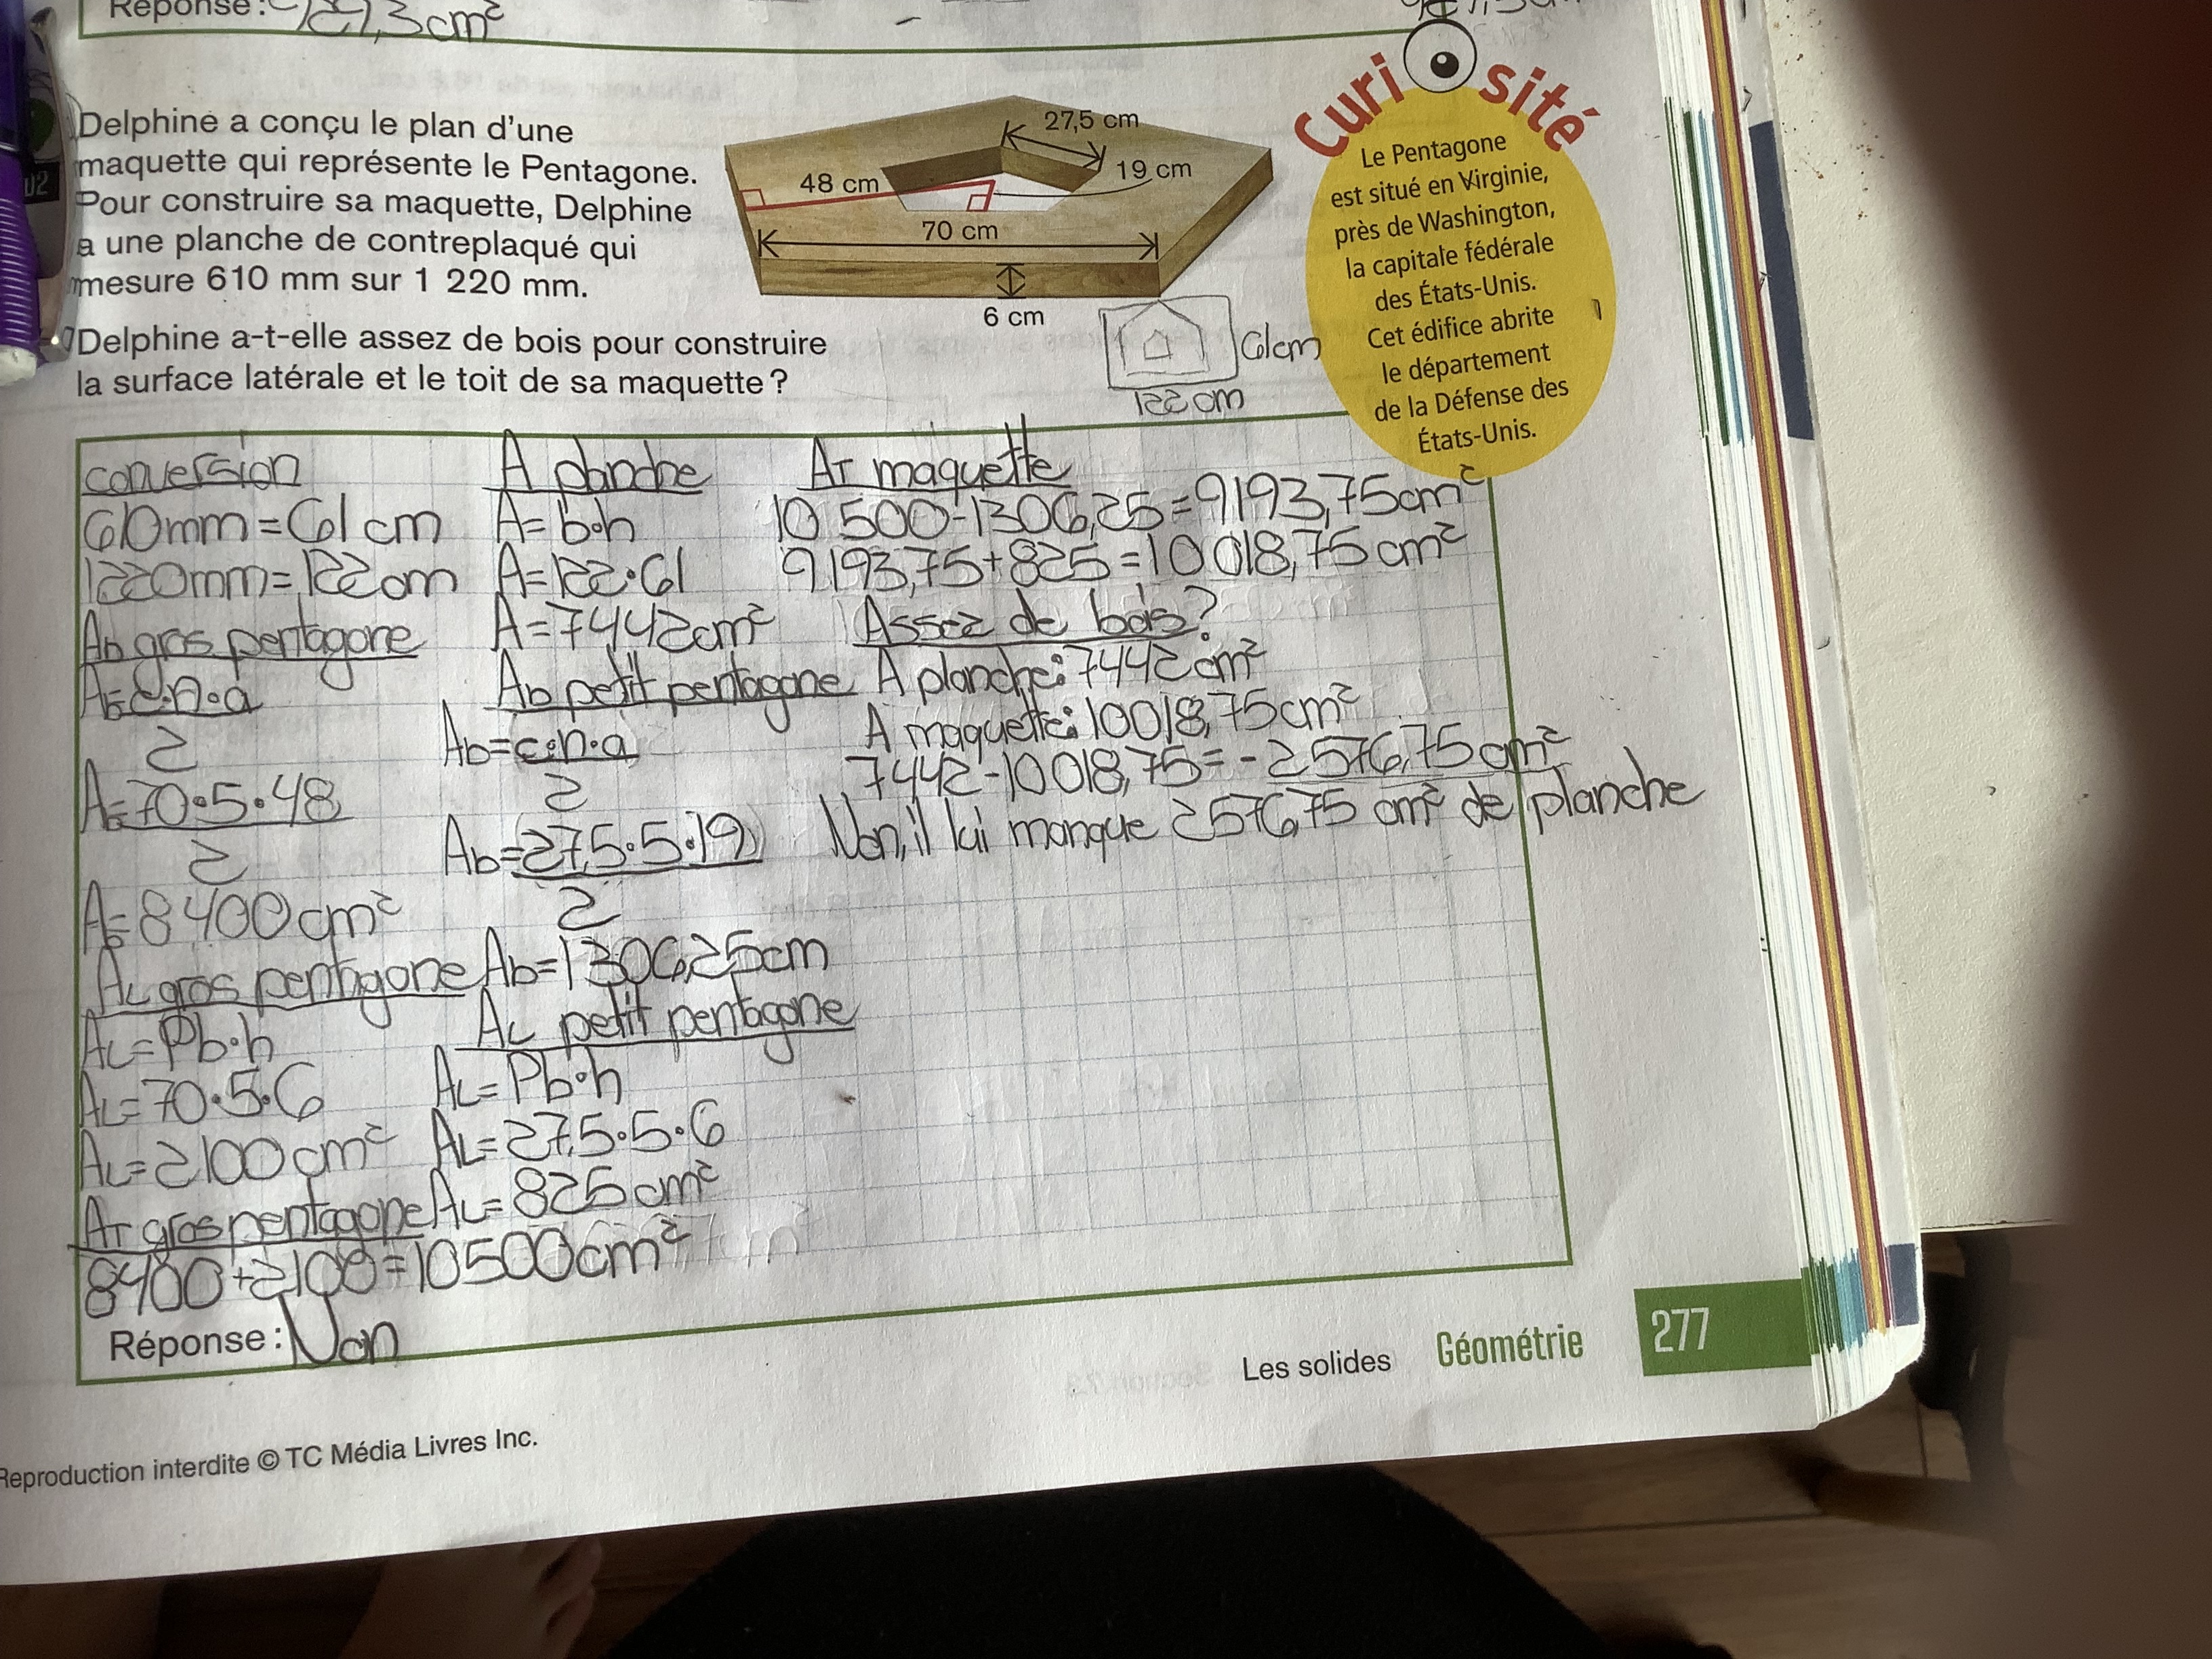 Réponse :
Delphine a conçu le plan d'une
maquette qui représente le Pentagone.
Pour construire sa maquette, Delphine
a une planche de contreplaqué qui
mesure 610 mm sur 1 220 mm.
Delphine a-t-elle assez de bois pour construire
la surface latérale et le toit de sa maquette ?
27,5 cm
19 cm
48 cm
70 cm
6 cm
61cm
122 cm
Curiosité
Le Pentagone
est situé en Virginie,
près de Washington,
la capitale fédérale
des États-Unis.
Cet édifice abrite
le département
de la Défense des
États-Unis.
conversion
610mm=61cm
1220mm=122cm
Ab gros pentagone
Ab=c·n·a
2
Ab=70·5·48
2
Ab=8400cm²
AL gros pentagone
AL=Pb·h
AL=70·5·6
AL=2100cm²
AT gros pentagone
8400+2100=10500cm²
A planche
A=b·h
A=122·61
A=7442cm²
Ab petit pentagone
Ab=c·n·a
2
Ab=27,5·5·19
2
Ab=1306,25cm
AL petit pentagone
AL=Pb·h
AL=27,5·5·6
AL=825cm²
AT maquette
10 500-1306,25=9193,75cm²
9193,75+825=10018,75cm²
Assez de bois?
A planche: 7442cm²
A maquette: 10018,75cm²
7442-10018,75=-2576,75cm²
Non, il lui manque 2576,75 cm² de planche
Réponse : Non
Les solides Géométrie 277
Reproduction interdite © TC Média Livres Inc.